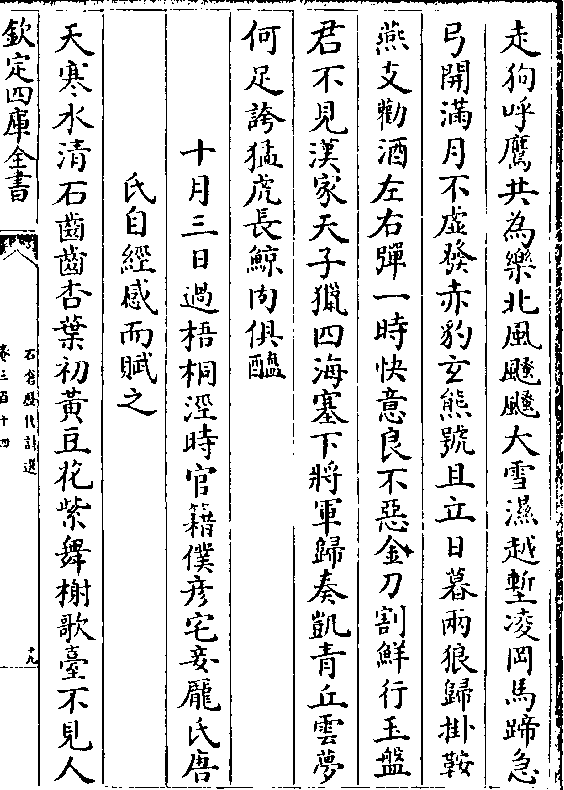 走狗呼鷹共為樂北風颾颾大雪濕越塹凌岡馬蹄急
弓開滿月不虛發赤豹玄熊號且立日暮兩狼歸掛鞍
燕支勸酒左右彈一時快意良不惡金刀割鮮行玉盤
君不見漢家天子獵四海塞下將軍歸奏凱青丘雲夢
何足誇猛虎長鯨肉俱醢
十月三日過梧桐涇時官籍僕彦宅妾龎氏唐
氏自經感而賦之
天寒水清石齒齒杏葉初黃豆花紫舞榭歌臺不見人
欽定四庫全書
石倉歴代詩選
卷三百十四
十九